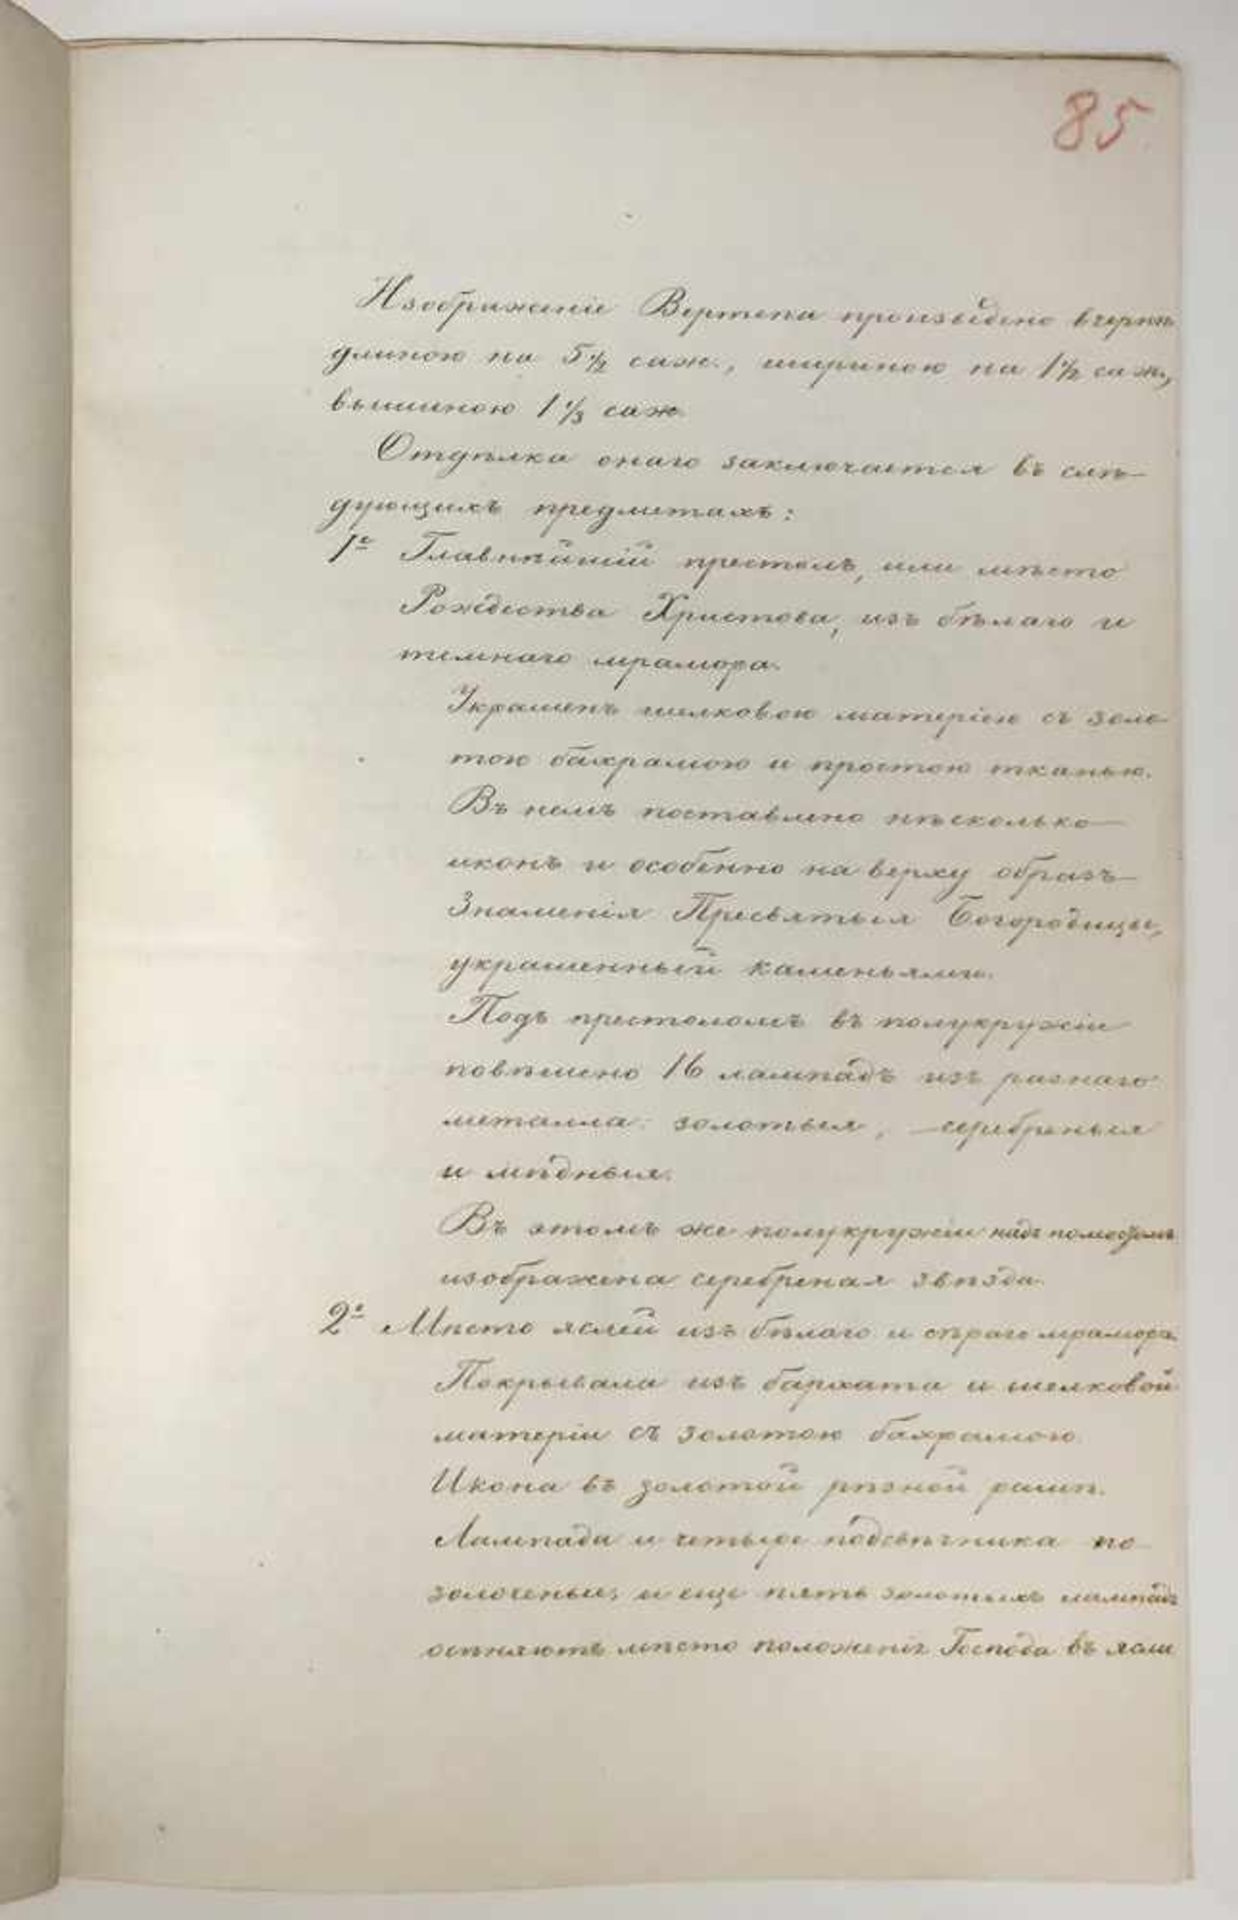 85
Изображеніе Вертепа произведено вчернѣ
длиною на 5 1/2 саж., шириною на 1 1/2 саж.,
вышиною 1 1/3 саж.
Отдѣлка онаго заключается въ слѣ-
дующихъ предметахъ:
1е Главнѣйшій престолъ, или мѣсто
Рождества Христова, изъ бѣлаго и
темнаго мрамора.
Украшенъ шелковою матеріею съ золо-
тою бахрамою и простою тканью.
Въ немъ поставлено нѣсколько
иконъ и особенно на верху образъ
Знаменія Пресвятыя Богородицы,
украшенный каменьями.
Подъ престоломъ въ полукружіи
повѣшено 16 лампадъ изъ разнаго
металла: золотыя, серебреныя
и мѣдныя.
Въ этомъ же полукружіи надъ помостомъ
изображена серебреная звѣзда.
2е Мѣсто яслей изъ бѣлаго и сѣраго мрамора.
Покрывала изъ бархата и шелковой
матеріи съ золотою бахрамою.
Икона въ золотой рѣзной рамѣ.
Лампада и четыре подсвѣчника по-
золоченые, и еще пять золотыхъ лампадъ
осѣняютъ мѣсто положенія Господа въ ясли